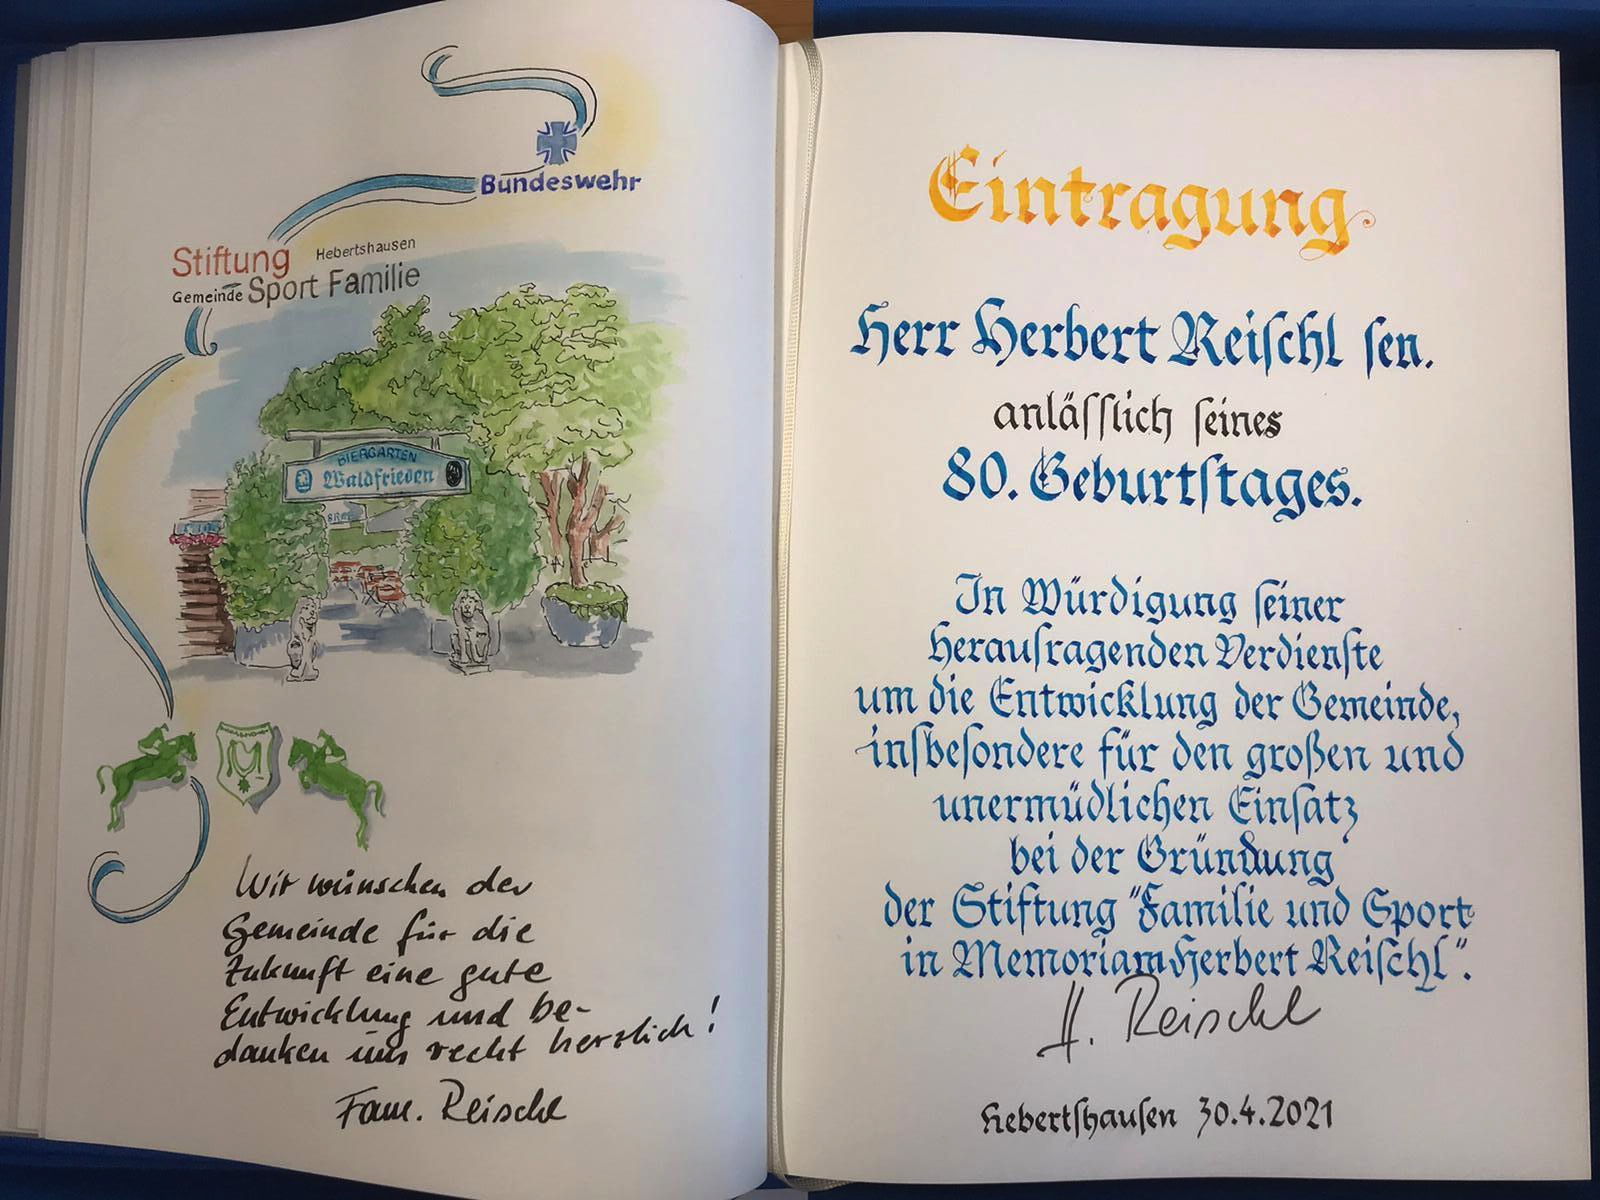 Bundeswehr
Stiftung Hebertshausen
Gemeinde Sport Familie
BIERGARTEN
Waldfrieden
Wir wünschen der
Gemeinde für die
Zukunft eine gute
Entwicklung und be-
danken uns recht herzlich!
Fam. Reischl
Eintragung
Herr Herbert Reiſchl ſen.
anläſſlich ſeines
80. Geburtſtages.
In Würdigung ſeiner
herauſragenden Verdienſte
um die Entwicklung der Gemeinde,
inſbeſondere für den großen und
unermüdlichen Einſatz
bei der Gründung
der Stiftung "Familie und Sport
in Memoriam Herbert Reiſchl".
H. Reischl
Hebertſhauſen 30.4.2021